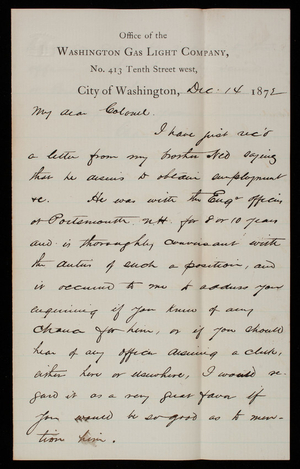 Office of the
WASHINGTON GAS LIGHT COMPANY,
No. 413 Tenth Street west,
City of Washington, Dec. 14 1872
My dear Colonel.
I have just rec'd
a letter from my brother Ned saying
that he desires to obtain employment
&c. He was with the Engr officers
at Portsmouth N.H. for 8 or 10 years
and is thoroughly conversant with
the duties of such a position, and
it occurred to me to address you
enquiring if you knew of any
chance for him, or if you should
hear of any officer desiring a clerk,
either here or elsewhere, I would re-
gard it as a very great favor if
you would be so good as to men-
tion him.